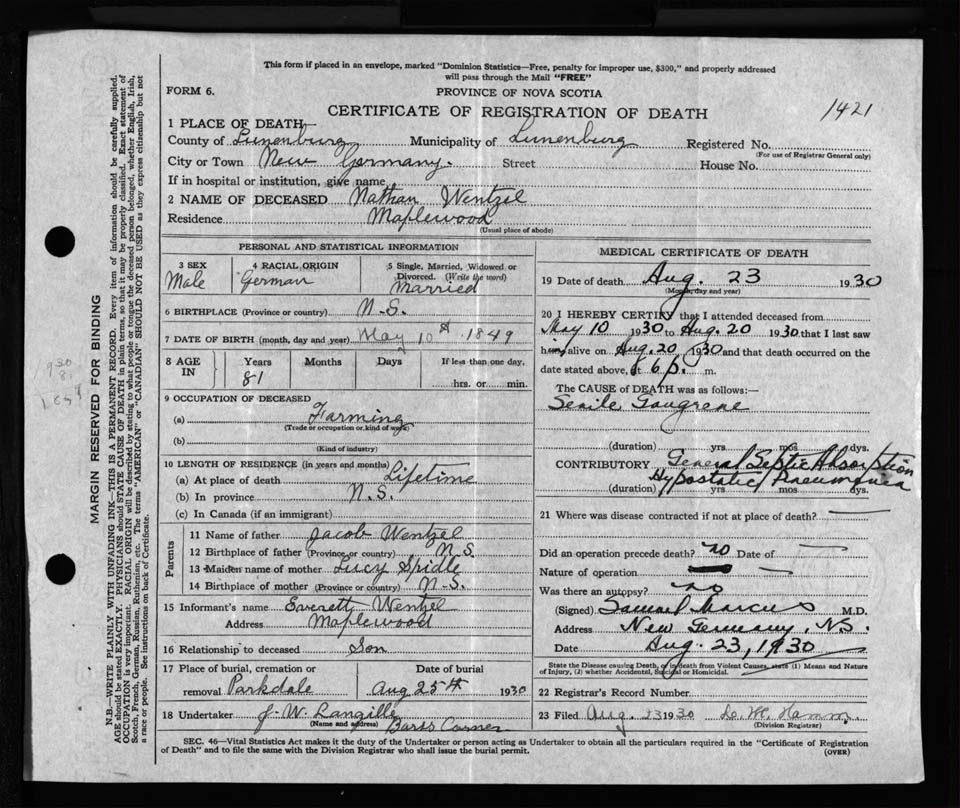 This form if placed in an envelope, marked "Dominion Statistics—Free, penalty for improper use, $300," and properly addressed
will pass through the Mail "FREE"
FORM 6.
PROVINCE OF NOVA SCOTIA
CERTIFICATE OF REGISTRATION OF DEATH
1421
1 PLACE OF DEATH—
County of Lunenburg Municipality of Lunenburg Registered No.
(For use of Registrar General only)
City or Town New Germany. Street House No.
If in hospital or institution, give name
2 NAME OF DECEASED Nathan Wentzel
Residence Maplewood
(Usual place of abode)
PERSONAL AND STATISTICAL INFORMATION
3 SEX 4 RACIAL ORIGIN 5 Single, Married, Widowed or Divorced. (Write the word)
Male German Married
6 BIRTHPLACE (Province or country) N.S.
7 DATE OF BIRTH (month, day and year) May 10 1849
8 AGE IN Years Months Days If less than one day.
81 hrs. or min.
9 OCCUPATION OF DECEASED
(a) Farming
(Trade or occupation or kind of work)
(b)
(Kind of industry)
10 LENGTH OF RESIDENCE (in years and months)
(a) At place of death Lifetime
(b) In province N.S.
(c) In Canada (if an immigrant)
Parents
11 Name of father Jacob Wentzel
12 Birthplace of father (Province or country) N.S.
13 Maiden name of mother Lucy Spidle
14 Birthplace of mother (Province or country) N.S.
15 Informant's name Everett Wentzel
Address Maplewood
16 Relationship to deceased Son
17 Place of burial, cremation or Date of burial
removal Parkdale Aug 25th 1930
18 Undertaker J. W. Langille
(Name and address) Barss Corner
MEDICAL CERTIFICATE OF DEATH
19 Date of death Aug. 23 1930
(Month, day and year)
20 I HEREBY CERTIFY that I attended deceased from
May 10 1930 to Aug. 20 1930 that I last saw
him alive on Aug. 20 1930 and that death occurred on the
date stated above, at 6 p. m.
The CAUSE of DEATH was as follows:—
Senile Gangrene
(duration) yrs. mos. dys.
CONTRIBUTORY General Septic Absorption
(duration) Hypostatic Pneumonia yrs. mos. dys.
21 Where was disease contracted if not at place of death? —
Did an operation precede death? no Date of —
Nature of operation —
Was there an autopsy? no
(Signed) Samuel Marcus M.D.
Address New Germany, N.S.
Date Aug. 23, 1930
State the Disease causing Death, or in death from Violent Causes, state (1) Means and Nature
of Injury, (2) whether Accidental, Suicidal or Homicidal.
22 Registrar's Record Number
23 Filed Aug. 23 1930
(Division Registrar)
SEC. 46—Vital Statistics Act makes it the duty of the Undertaker or person acting as Undertaker to obtain all the particulars required in the "Certificate of Registration
of Death" and to file the same with the Division Registrar who shall issue the burial permit.
(OVER)
MARGIN RESERVED FOR BINDING
N.B.—WRITE PLAINLY WITH UNFADING INK—THIS IS A PERMANENT RECORD. Every item of information should be carefully supplied.
AGE should be stated EXACTLY. PHYSICIANS should STATE CAUSE OF DEATH in plain terms, so that it may be properly classified. Exact statement of
OCCUPATION is very important. RACIAL ORIGIN will be described by stating to what people or tongue the deceased person belonged, whether English, Irish,
Scotch, French, German, Russian, Ruthenian, etc. The terms "AMERICAN" or "CANADIAN" SHOULD NOT BE USED as they express citizenship but not
a race or people. See instructions on back of Certificate.